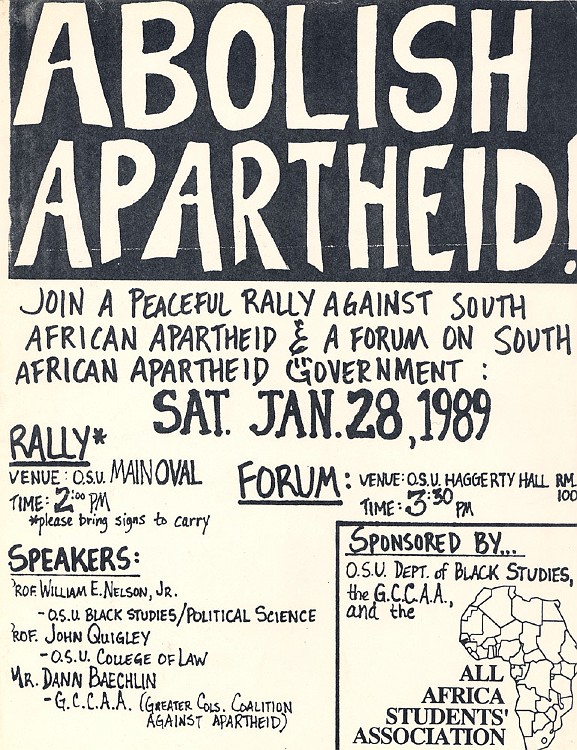 ABOLISH
APARTHEID!
JOIN A PEACEFUL RALLY AGAINST SOUTH
AFRICAN APARTHEID & A FORUM ON SOUTH
AFRICAN APARTHEID GOVERNMENT :
SAT. JAN. 28, 1989
RALLY*
VENUE : O.S.U. MAIN OVAL
TIME: 2:00 PM
*please bring signs to carry
FORUM: VENUE: O.S.U. HAGGERTY HALL RM.
100
TIME: 3:30 PM
SPEAKERS:
PROF. WILLIAM E. NELSON, JR.
- O.S.U. BLACK STUDIES/POLITICAL SCIENCE
PROF. JOHN QUIGLEY
- O.S.U. COLLEGE OF LAW
MR. DANN BAECHLIN
- G.C.C.A.A. (GREATER COLS. COALITION
AGAINST APARTHEID)
SPONSORED BY...
O.S.U. DEPT. of BLACK STUDIES,
the G.C.C.A.A.,
and the
ALL
AFRICA
STUDENTS'
ASSOCIATION